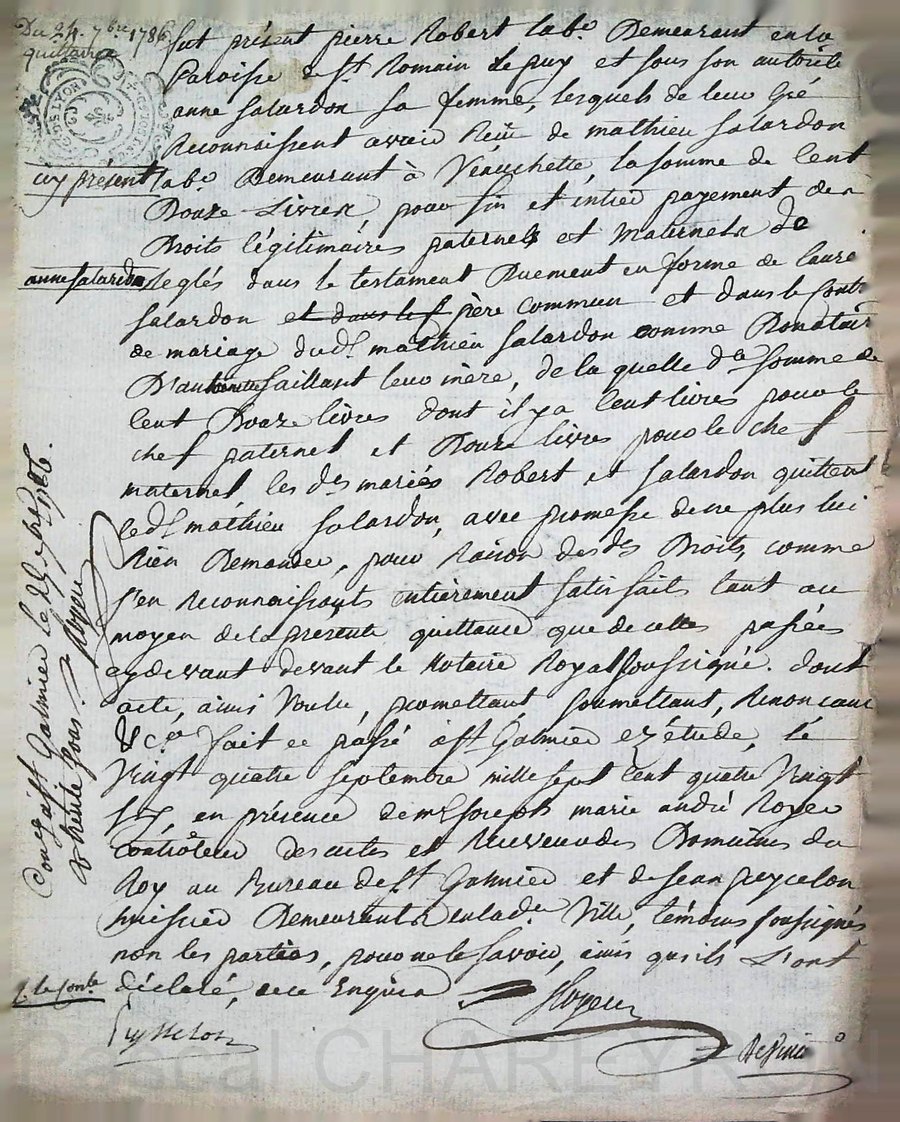 Du 24. 7bre 1786
quittance
fut présent pierre Robert labr. Demeurant en la
Paroisse de St. Romain le puy et sous son autorité
anne Salardon sa femme, lesquels de leur Gré
Reconnaissent avoir Reçu de mathieu Salardon
icy présent
labr. Demeurant à Veauchette, la somme de Cent
Douze Livres, pour fin et entier payement des
Droits légitimaires paternels et Maternels de
anne Salardon
Reglés dans le testament Duement en forme de
Salardon et dans le père commun et dans le Contr
de mariage dud. mathieu Salardon comme Donatair
D'antoinette Saillant leur mère, de la quelle de somme de
Cent Douze livres dont il y a Cent livres pour le
chef paternel et Douze livres pour le chef
maternel, les ds mariés Robert et Salardon quittent
led. mathieu Salardon, avec promesse de ne plus lui
Rien Demander, pour Raison desds Droits, comme
s'en Reconnaissants entièrement satisfaits tant au
moyen de la présente quittance que de celles passées
cydevant devant le Notaire Royal soussigné. dont
acte, ainsi Voulu, promettant, soumettant, Renonçant
&ca. fait et passé à St. Galmier ez étude, le
Vingt quatre septembre mille sept Cent quatre Vingt
six, en présence de me Joseph marie andré Royer
Contrôleur des actes et Receveur des Domaines du
Roy au Bureau de St. Galmier et de Jean peycelon
huissier Demeurants en lad. Ville, témoins soussignés
non les parties, pour ne le savoir, ainsi qu'ils L'ont
déclaré, de ce Enquis
Royer
Peysselon
Con. à St. Galmier le ds. 7bre 1786.
R. trente sous. Royer
Pascal CHARLEYRON